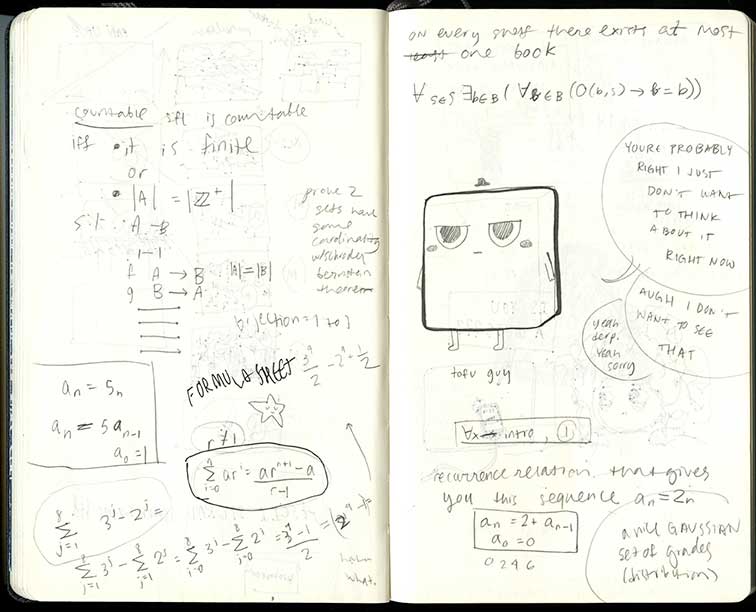 countable set is countable
iff • it is finite
or
• |A| = |ℤ⁺|
s.t. A → B
1-1
f A → B
g B → A
|A| = |B|
prove 2
sets have
same
cardinality
w/schroder
bernstein
theorem
bijection = 1 to 1
3⁹/2 - 2⁹ + 1/2
FORMULA SHEET
aₙ = 5ₙ
aₙ = 5aₙ₋₁
a₀ = 1
r ≠ 1
n∑i=0 arⁱ = (arⁿ⁺¹ - a)/(r-1)
8∑j=1 3ʲ - 2ʲ =
8∑j=1 3ʲ - 8∑j=1 2ʲ = 8∑j=0 3ʲ - 8∑j=0 2ʲ = (3⁹-1)/2 = (2⁹ - 1)
on every shelf there exists at most
one book
∀s∈S ∃b∈B (∀b∈B (O(b,s) → b = b))
YOU'RE PROBABLY
RIGHT I JUST
DON'T WANT
TO THINK
ABOUT IT
RIGHT NOW
AUGH I DON'T
WANT TO SEE
THAT
yeah
derp.
yeah
sorry
tofu guy
∀x intro, ①
recurrence relation that gives
you this sequence aₙ = 2n
aₙ = 2 + aₙ₋₁
a₀ = 0
0 2 4 6
a nice GAUSSIAN
set of grades
(distribution)